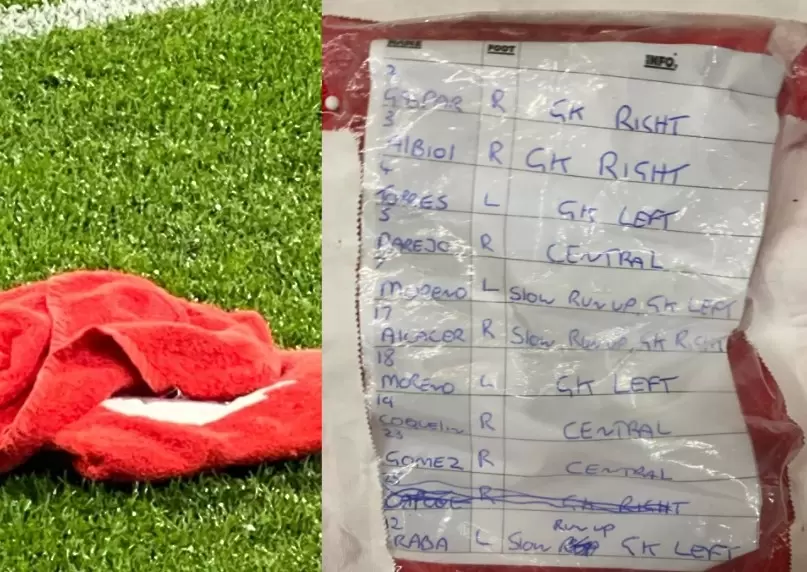 NAME FOOT INFO.
2
GASPAR R GK RIGHT
3
ALBIOL R GK RIGHT
4
TORRES L GK LEFT
5
PAREJO R CENTRAL
7
MORENO L Slow RUN UP, GK LEFT
17
ALCACER R Slow Run up, GK RIGHT
18
MORENO L GK LEFT
19
COQUELIN R CENTRAL
23
GOMEZ R CENTRAL
25
R GK RIGHT
12 Run up
RABA L Slow GK LEFT